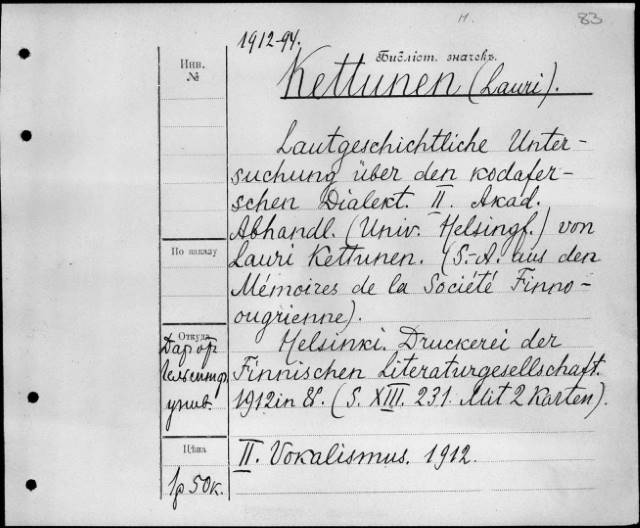 1912-94.
М.
83
Инв. №
Библіот. значекъ.
Kettunen (Lauri).
Lautgeschichtliche Unter-
suchung über den kodafer-
schen Dialekt. II. Akad.
Abhandl. (Univ. Helsingf.) von
Lauri Kettunen. (S.-A. aus den
Mémoires de la Société Finno-
ougrienne).
По заказу
Helsinki. Druckerei der
Finnischen Literaturgesellschaft.
1912 in 8°. (S. XIII. 231. Mit 2 Karten).
Откуда
Дар от
Гельсингф.
унив.
II. Vokalismus. 1912.
Цѣна
1р 50к.